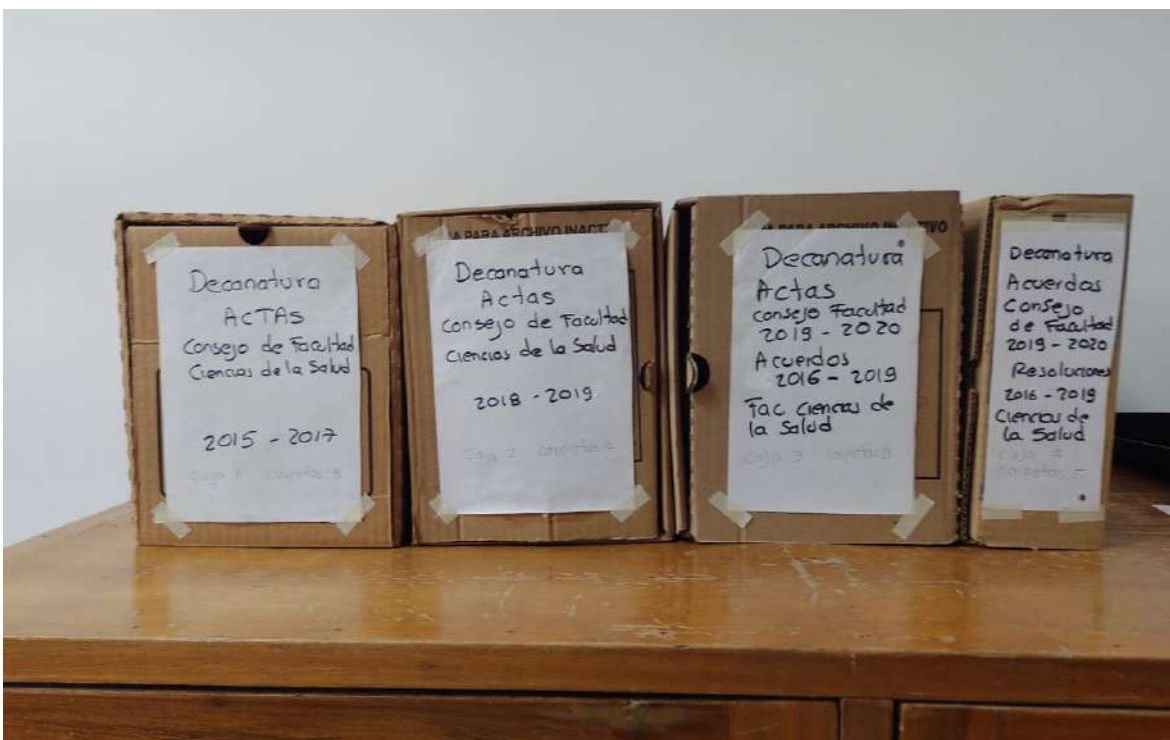 Decanatura
ACTAS
Consejo de Facultad
Ciencias de la Salud
2015 - 2017
Caja 1 carpetas 8
A PARA ARCHIVO INACT
Decanatura
Actas
Consejo de Facultad
Ciencias de la Salud
2018 - 2019
Caja 2 carpetas
VO
Decanatura
Actas
Consejo Facultad
2019 - 2020
Acuerdos
2016 - 2019
Fac Ciencias de
la Salud
Caja 3
Decanatura
Acuerdos
Consejo
de Facultad
2019 - 2020
Resoluciones
2016 - 2019
Ciencias de
la Salud
caja 4
carpetas 5